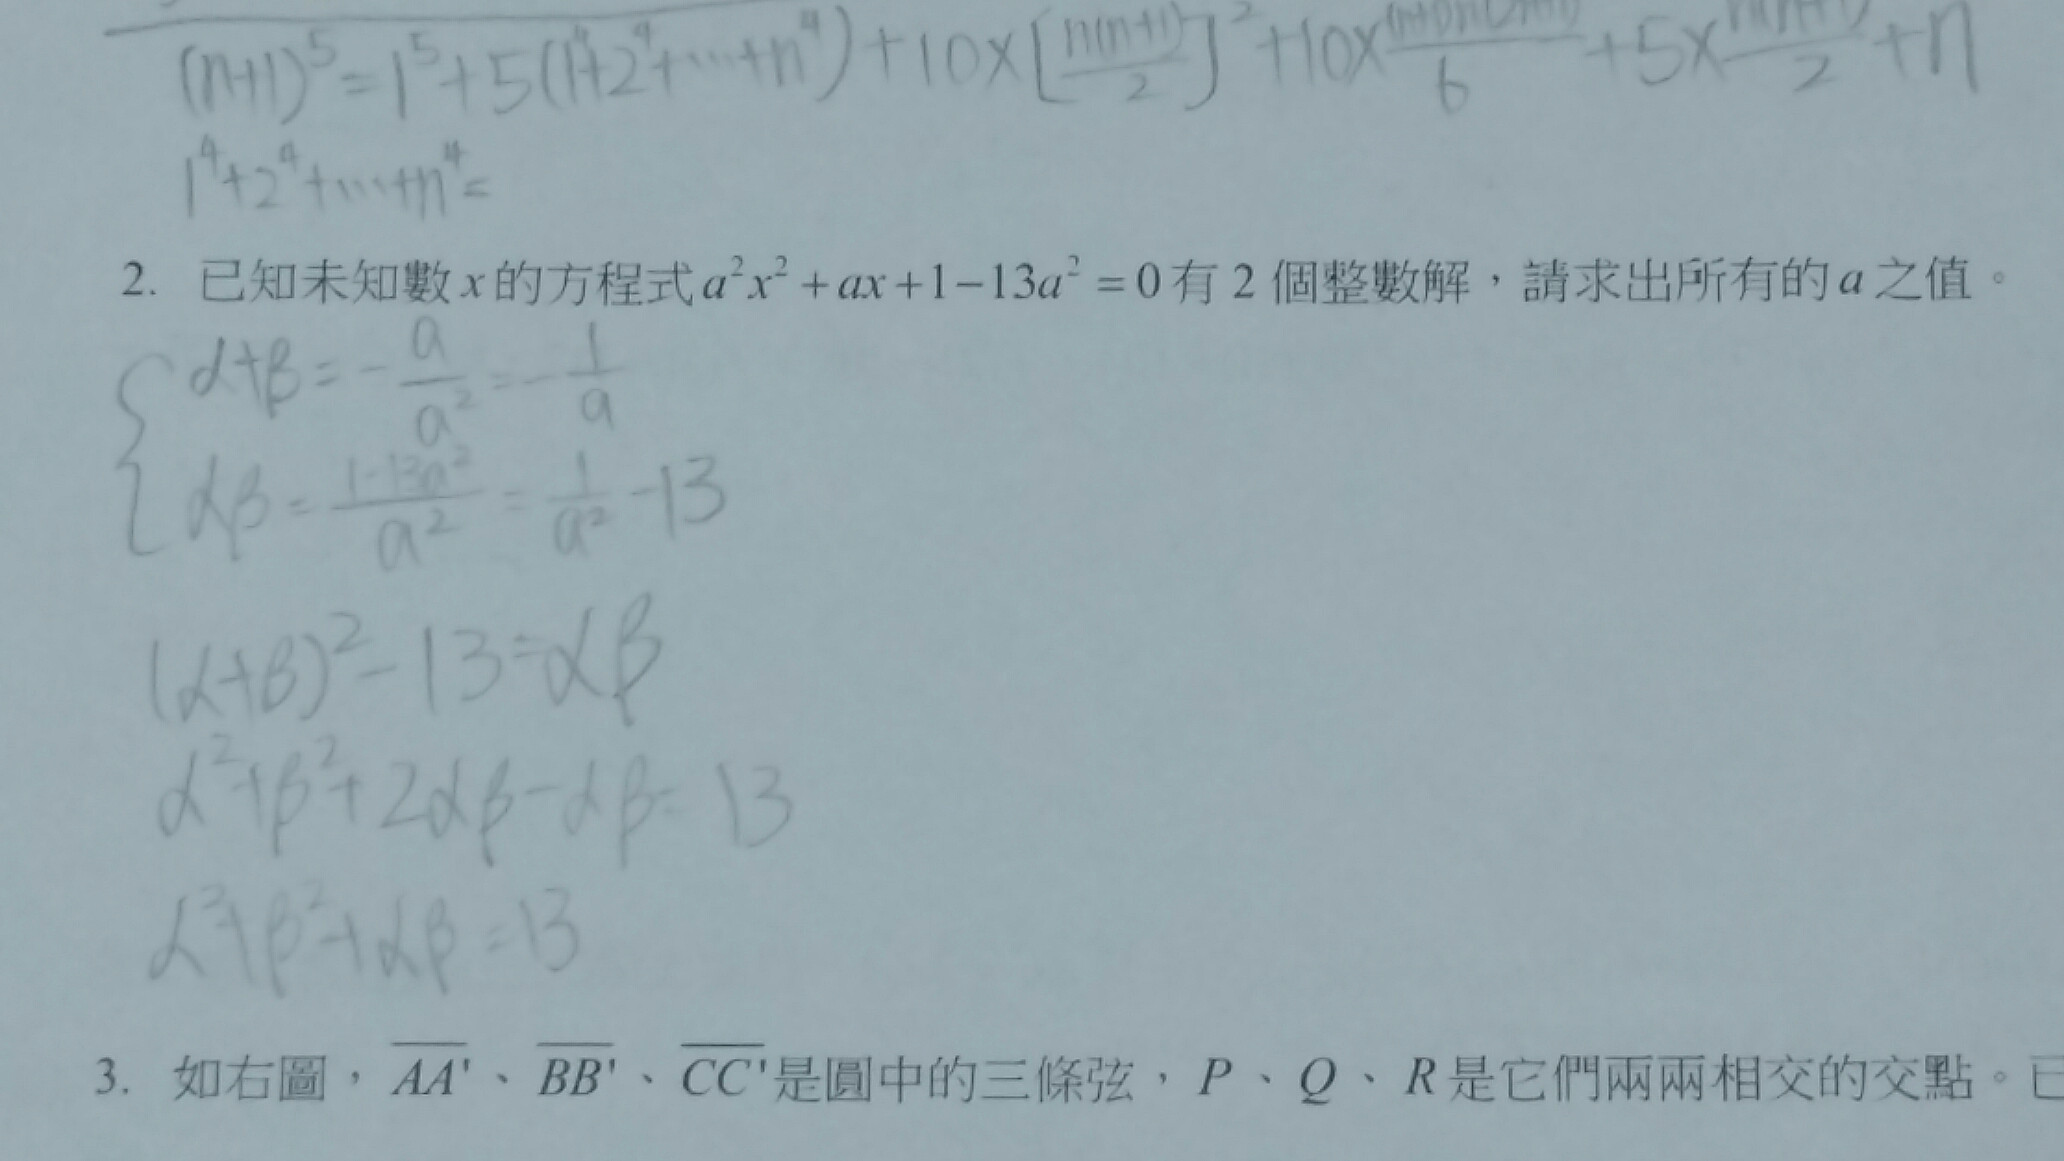 (n+1)⁵=1⁵+5(1⁴+2⁴+…+n⁴)+10×[n(n+1)/2]²+10×n(n+1)(2n+1)/6+5×n(n+1)/2+n
1⁴+2⁴+…+n⁴=
2. 已知未知數x的方程式a²x²+ax+1−13a²=0有 2 個整數解，請求出所有的a之值。
α+β=-a/a²=-1/a
αβ=(1-13a²)/a²=1/a²-13
(α+β)²-13=αβ
α²+β²+2αβ-αβ=13
α²+β²+αβ=13
3. 如右圖，AA'、BB'、CC'是圓中的三條弦，P、Q、R是它們兩兩相交的交點。已